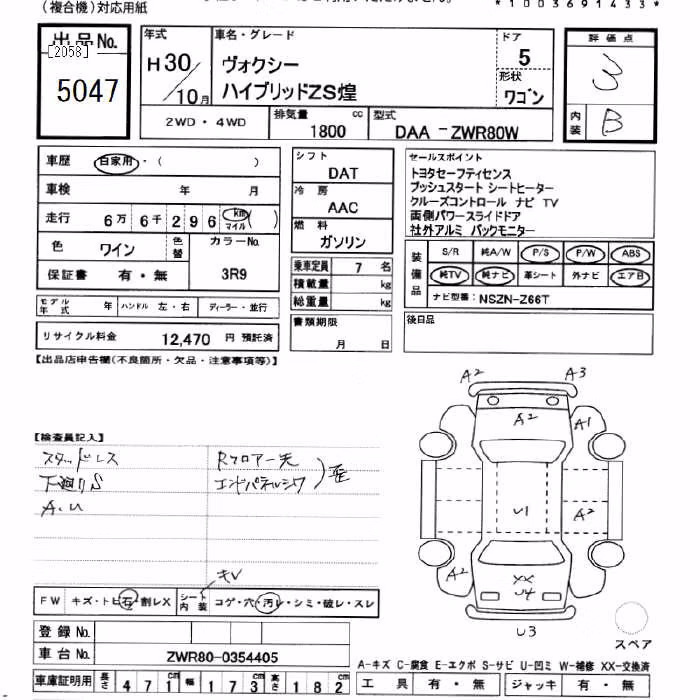 (複合機)対応用紙
*1003691433**
出品No.
[2058]
5047
年式
H30/10月
車名・グレード
ヴォクシー
ハイブリッドZS煌
ドア
5
形状
ワゴン
評価点
3
内装
B
2WD・4WD
排気量 1800 cc
型式 DAA-ZWR80W
車歴 自家用・( )
車検 年 月
走行 6万 6千 2 9 6 km マイル ( )
色 ワイン 色替 カラーNo. 3R9
保証書 有・無
モデル年式 年 ハンドル 左・右 ディーラー・並行
リサイクル料金 12,470 円 預託済
シフト
DAT
冷房
AAC
燃料
ガソリン
乗車定員 7 名
積載量 kg
総重量 kg
書類期限
月 日
セールスポイント
トヨタセーフティセンス
プッシュスタート シートヒーター
クルーズコントロール ナビ TV
両側パワースライドドア
社外アルミ バックモニター
装備品
S/R 純A/W P/S P/W ABS
純TV 純ナビ 革シート 外ナビ エアB
ナビ型番: NSZN-Z66T
後日品
【出品店申告欄(不良箇所・欠品・注意事項等)】
【検査員記入】
スタッドレス
下廻りS
A.U
Rフロアー先
エンドパネルシワ
歪
キレ
FW キズ・トビ石・割レX
シート内装 コゲ・穴・汚レ・シミ・破レ・スレ
登録No.
車台No. ZWR80-0354405
車庫証明用 長さ 471cm 幅 173cm 高さ 182cm
A2
A3
A2
A1
U1
A2
A2
XX
U4
U3
スペア
A-キズ C-腐食 E-エクボ S-サビ U-凹ミ W-補修 XX-交換済
工具 有・無 ジャッキ 有・無